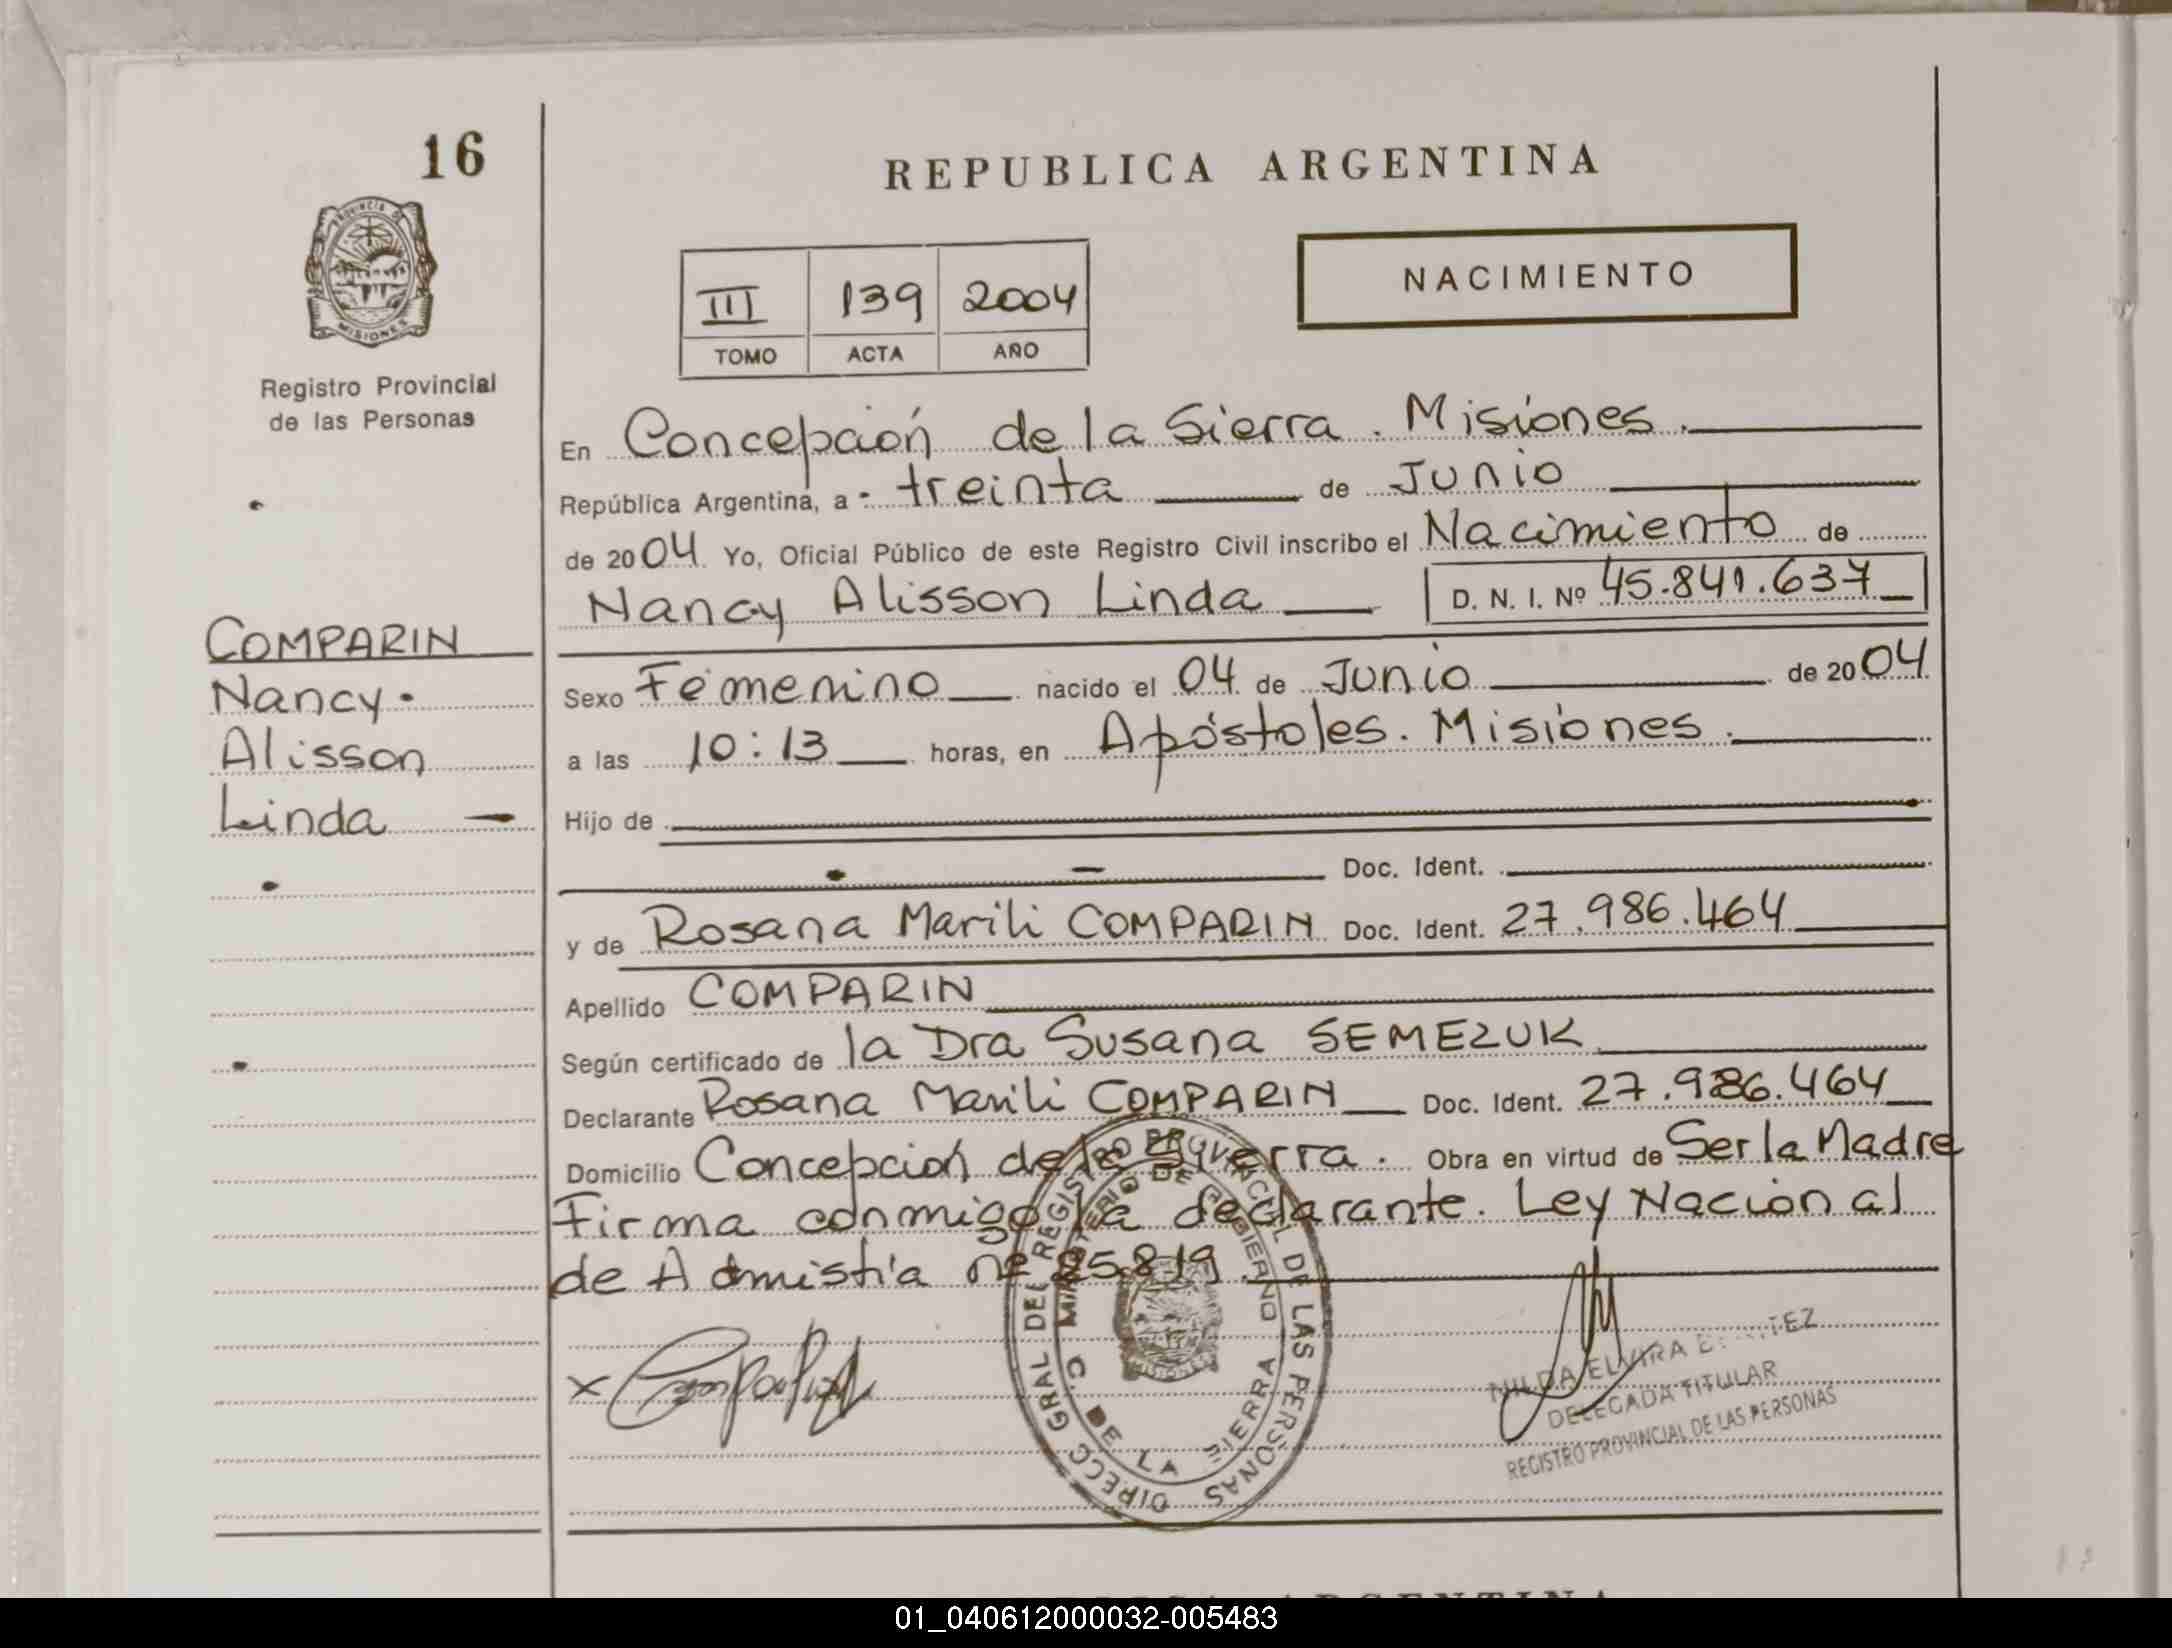 16
REPUBLICA ARGENTINA
PROVINCIA DE
MISIONES
Registro Provincial
de las Personas
III 139 2004
TOMO ACTA AÑO
NACIMIENTO
En Concepción de la Sierra. Misiones.
República Argentina, a treinta de Junio
de 2004 Yo, Oficial Público de este Registro Civil inscribo el Nacimiento de
Nancy Alisson Linda D. N. I. Nº 45.841.637
COMPARIN
Nancy
Alisson
Linda
Sexo Femenino nacido el 04 de Junio de 2004
a las 10:13 horas, en Apóstoles. Misiones.
Hijo de
Doc. Ident.
y de Rosana Marili COMPARIN Doc. Ident. 27.986.464
Apellido COMPARIN
Según certificado de la Dra Susana SEMEZUK
Declarante Rosana Marili COMPARIN Doc. Ident. 27.986.464
Domicilio Concepción de la Sierra. Obra en virtud de Ser la Madre
Firma conmigo la declarante. Ley Nacional
de Admistía nº 25.819
DIRECC GRAL DEL REGISTRO PROVINCIAL DE LAS PERSONAS
MINISTERIO DE GOBIERNO
C. DE LA SIERRA
NILDA ELVIRA
DELEGADA TITULAR
REGISTRO PROVINCIAL DE LAS PERSONAS
ARGENTINA
01_040612000032-005483